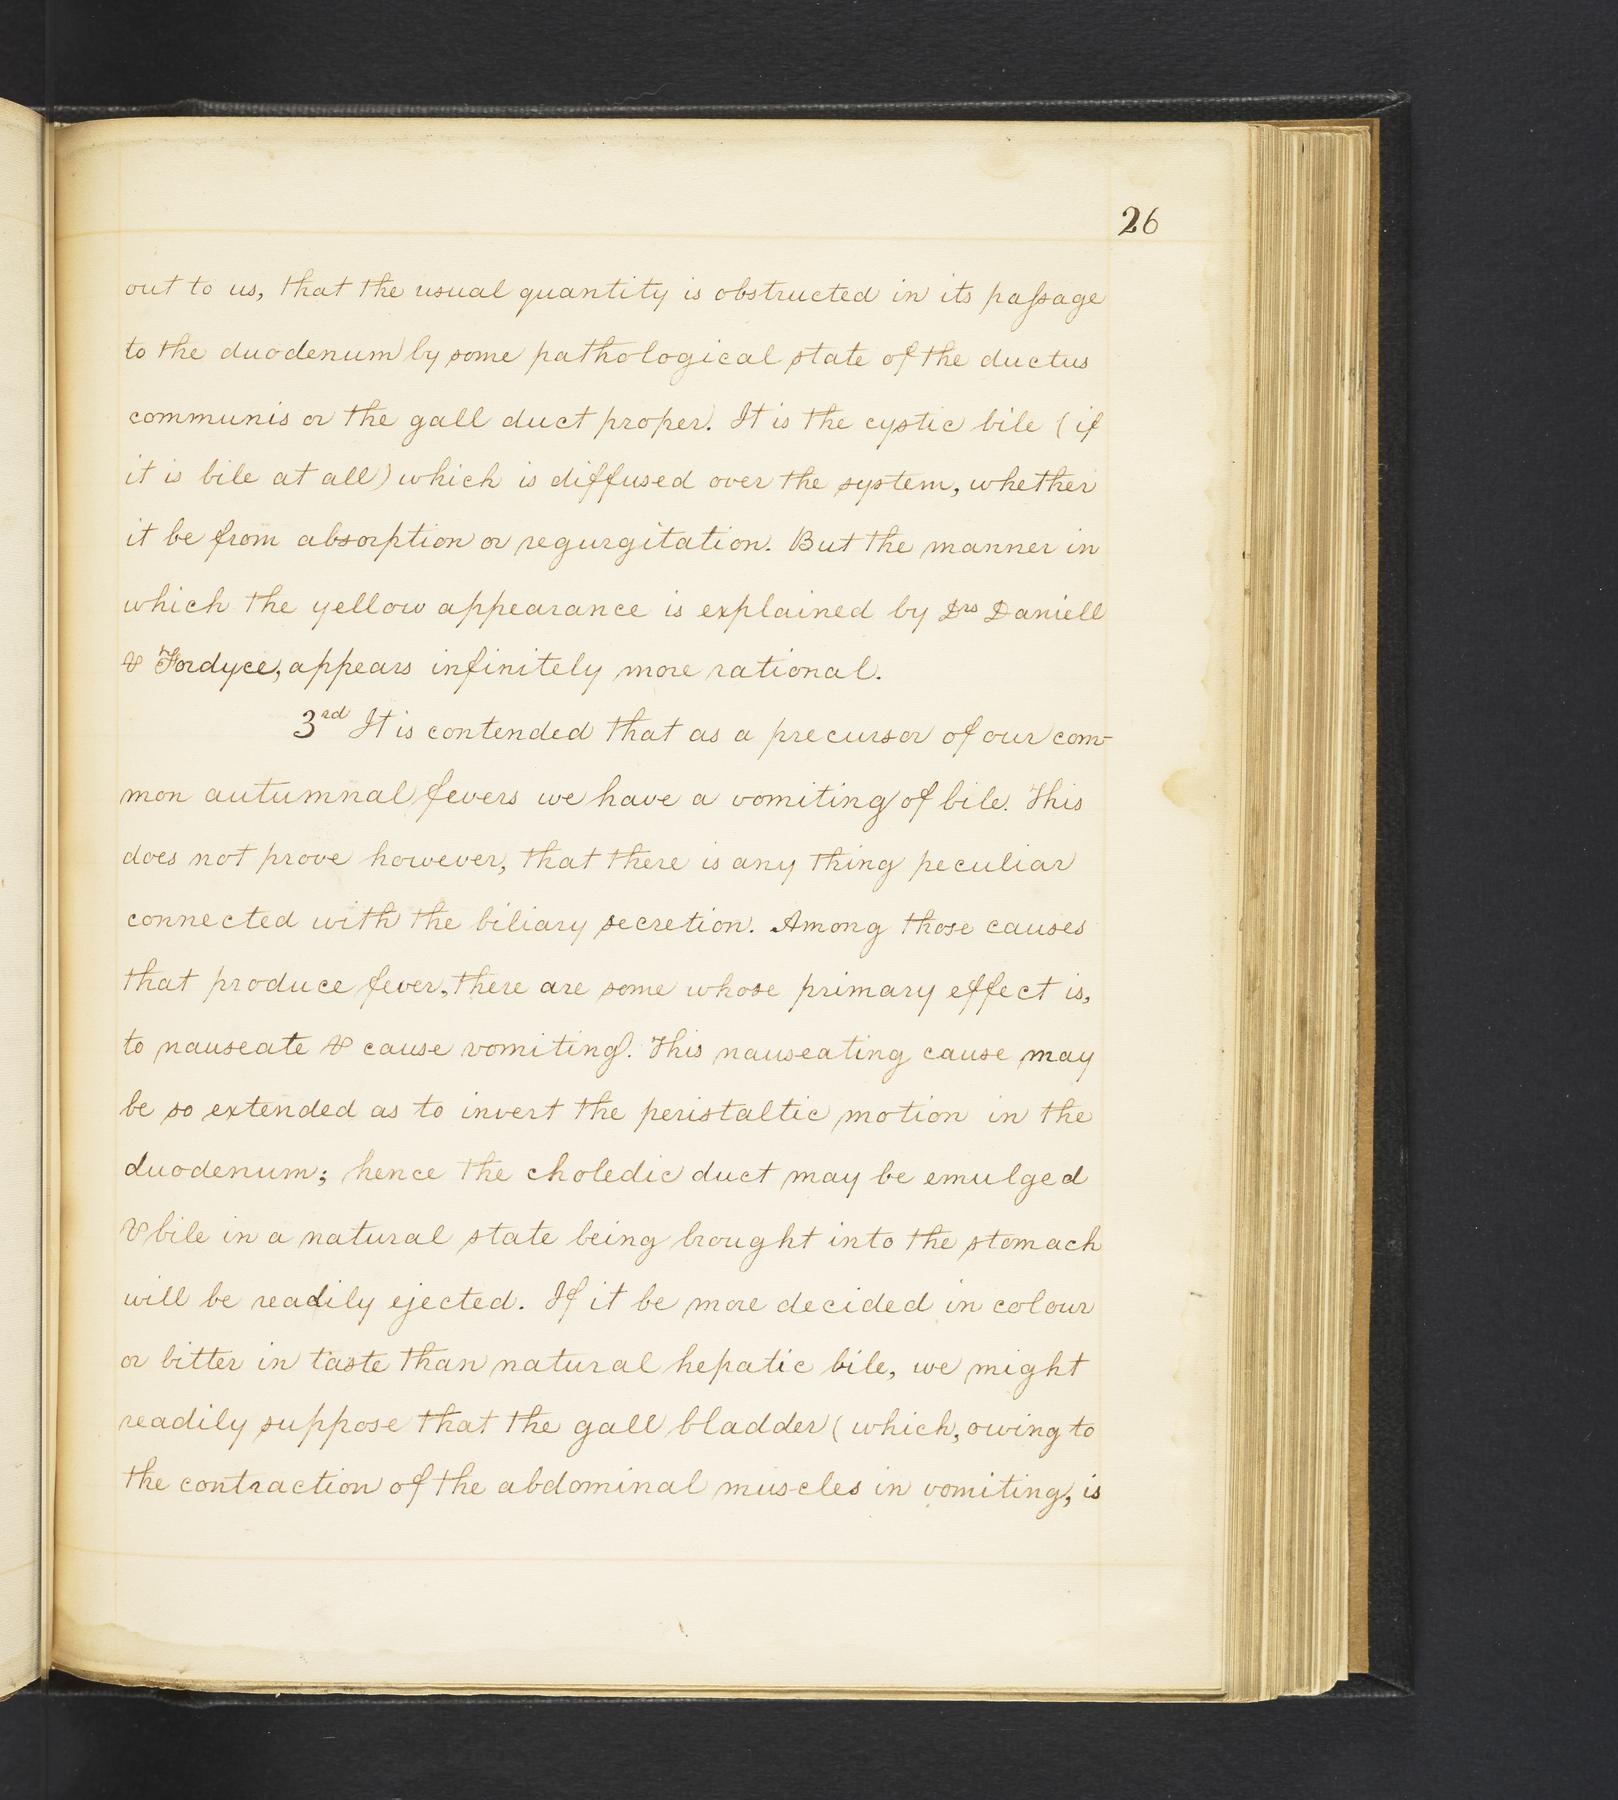 26
out to us, that the usual quantity is obstructed in its paſsage
to the duodenum by some pathological state of the ductus
communis or the gall duct proper. It is the cystic bile (if
it is bile at all) which is diffused over the system, whether
it be from absorption or regurgitation. But the manner in
which the yellow appearance is explained by Drs Daniell
& Fordyce, appears infinitely more rational.
3rd It is contended that as a precursor of our com-
mon autumnal fevers we have a vomiting of bile. This
does not prove however, that there is any thing peculiar
connected with the biliary secretion. Among those causes
that produce fever, there are some whose primary effect is,
to nauseate & cause vomiting. This nauseating cause may
be so extended as to invert the peristaltic motion in the
duodenum; hence the choledic duct may be emulged
& bile in a natural state being brought into the stomach
will be readily ejected. If it be more decided in colour
or bitter in taste than natural hepatic bile, we might
readily suppose that the gall bladder (which, owing to
the contraction of the abdominal muscles in vomiting, is